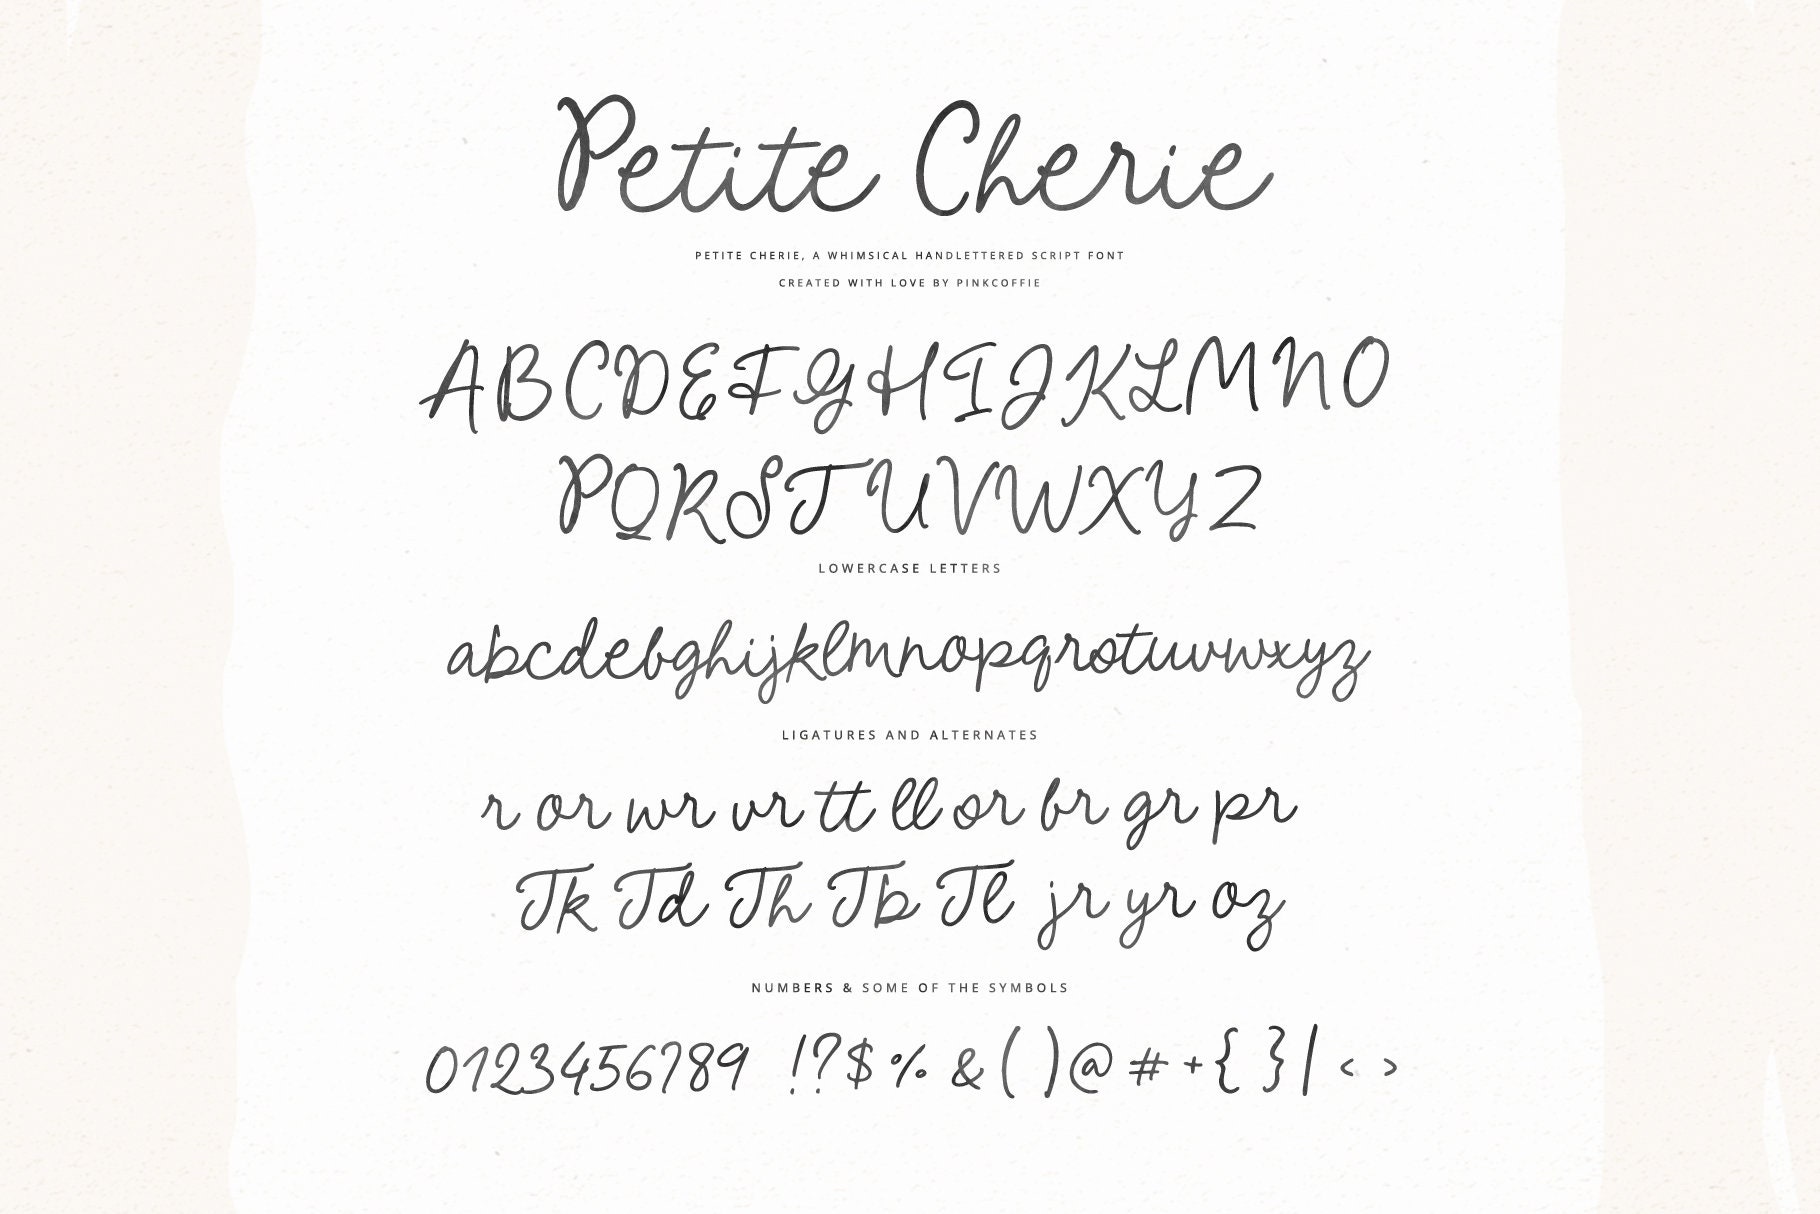 Petite Cherie
PETITE CHERIE, A WHIMSICAL HANDLETTERED SCRIPT FONT
CREATED WITH LOVE BY PINKCOFFIE
ABCDEFGHIJKLMNO
PQRSTUVWXYZ
LOWERCASE LETTERS
abcdefghijklmnopqrstuvwxyz
LIGATURES AND ALTERNATES
r or wr vr tt ll sr br gr pr
Tk Td Th Tb Tl jr yr oz
NUMBERS & SOME OF THE SYMBOLS
0123456789 !?$% &()@#+{}|<>